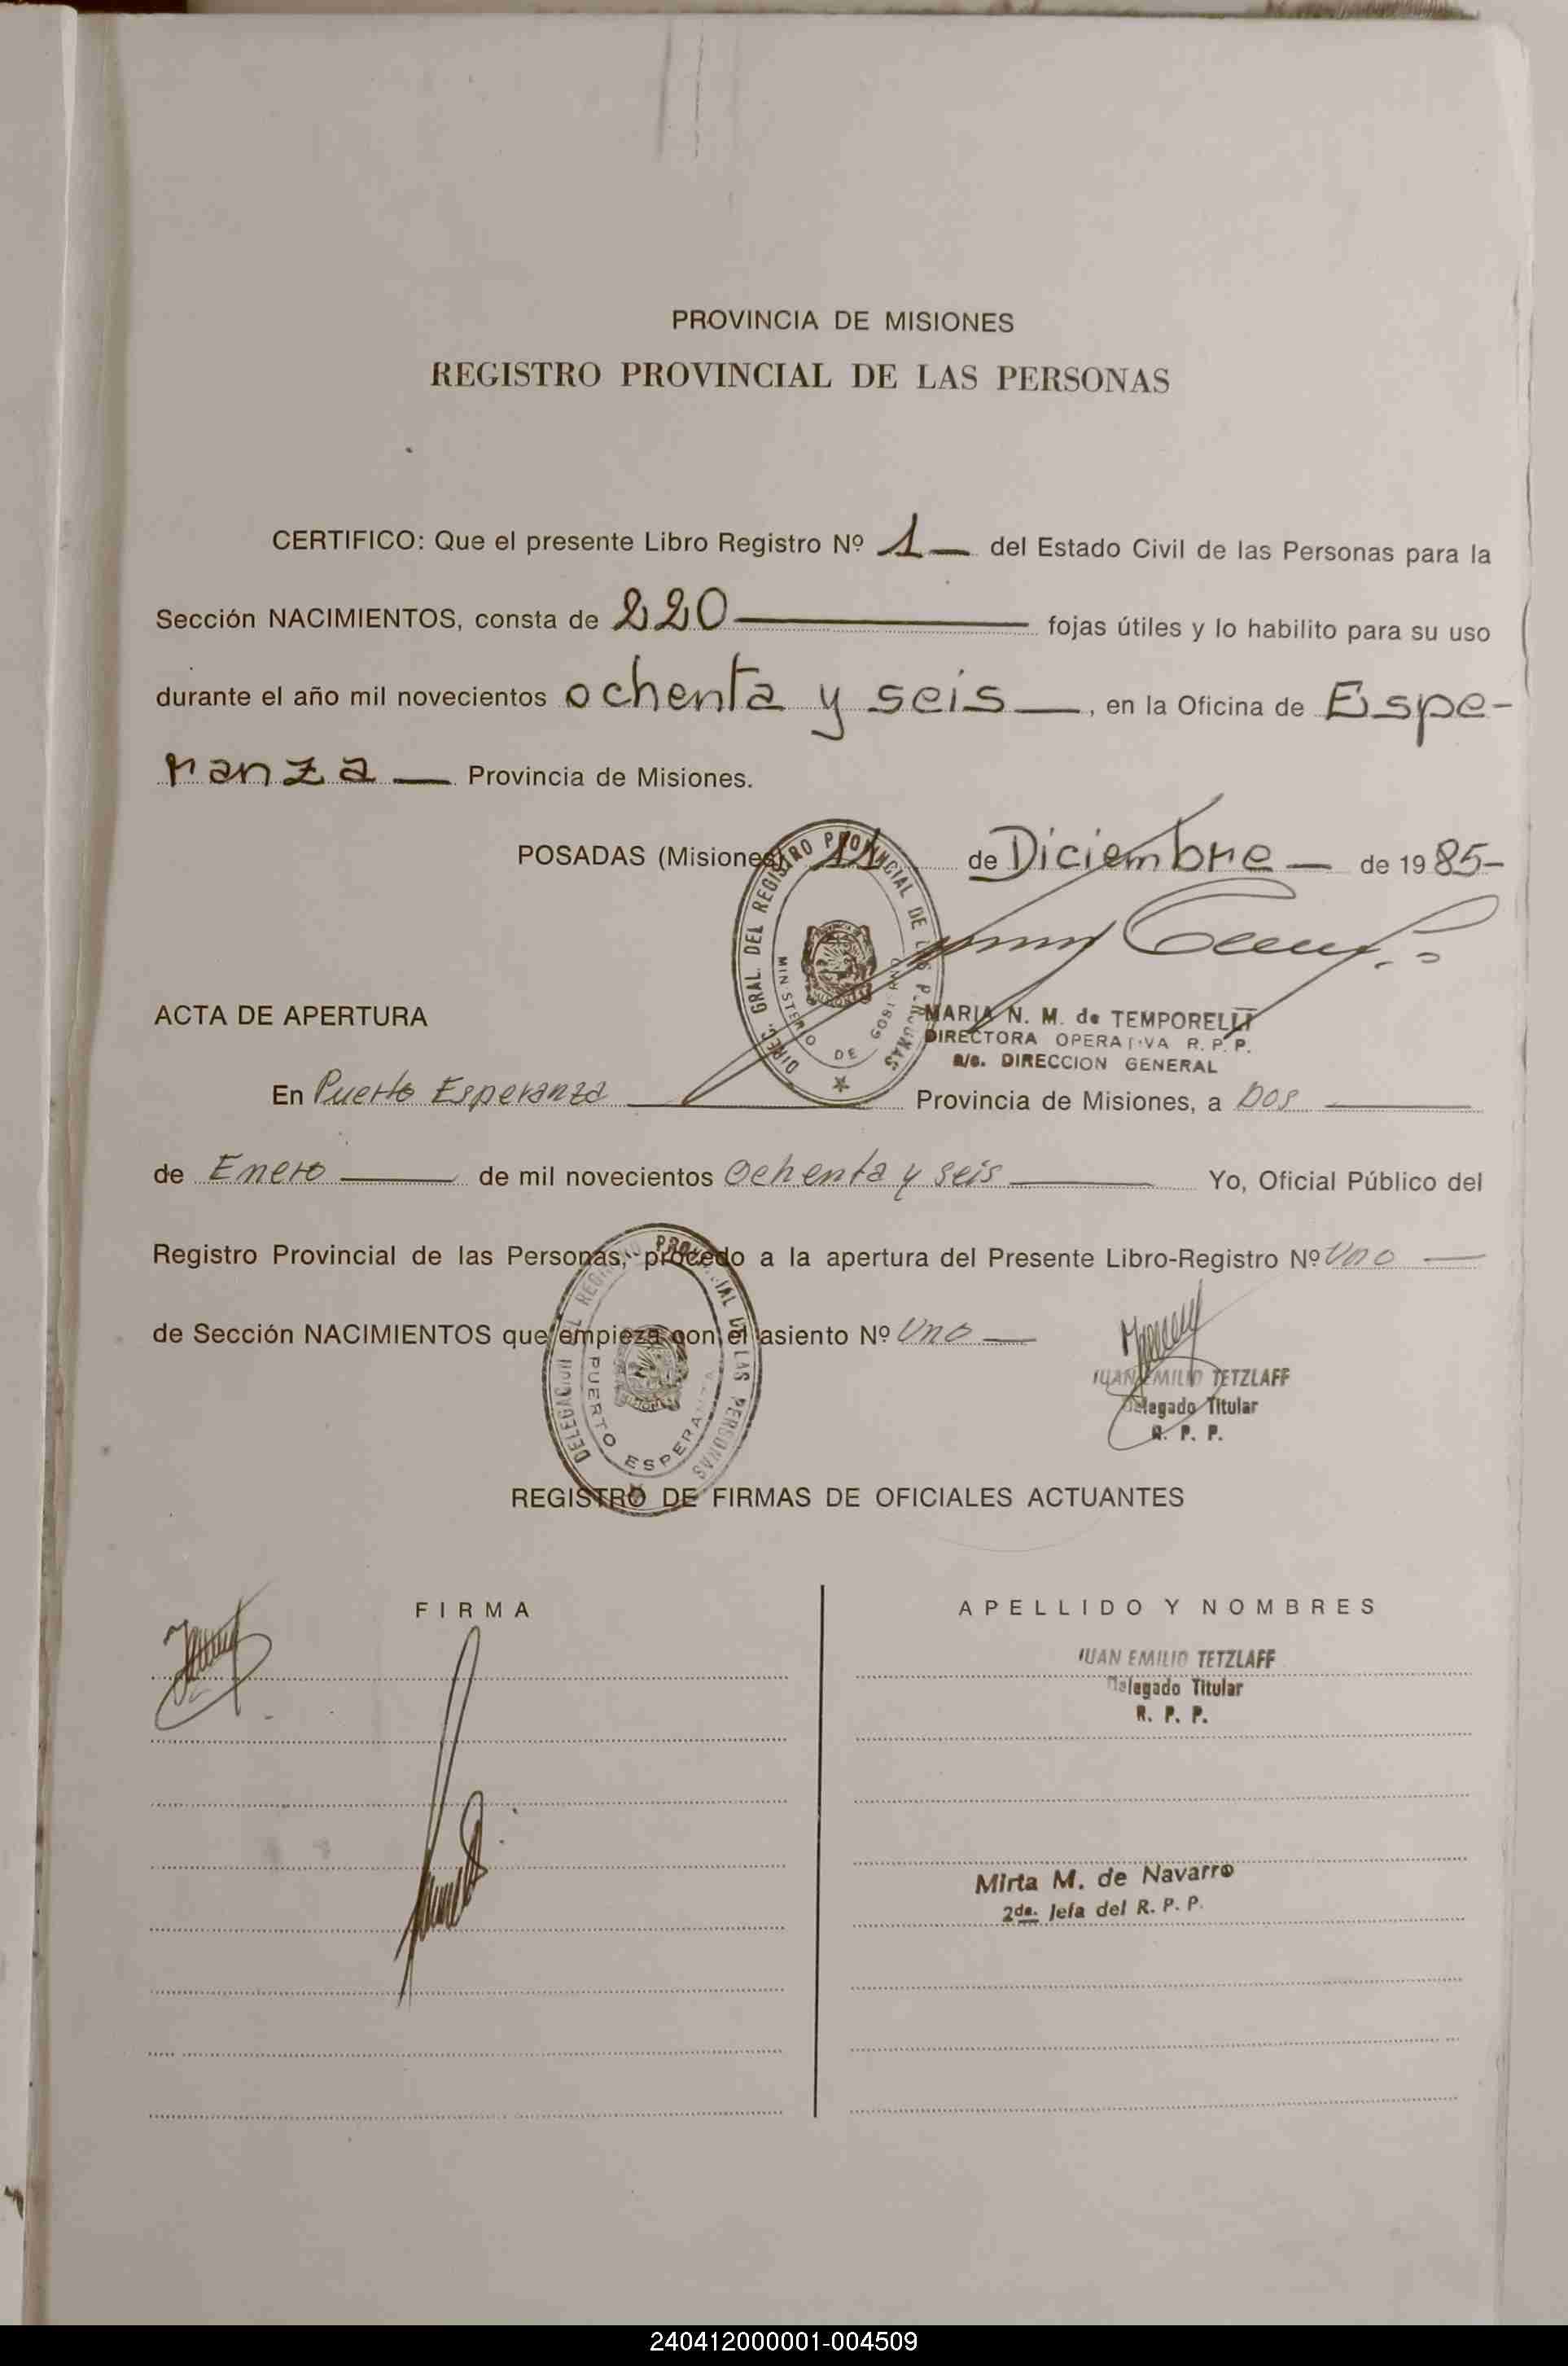 PROVINCIA DE MISIONES
REGISTRO PROVINCIAL DE LAS PERSONAS
CERTIFICO: Que el presente Libro Registro Nº 1 — del Estado Civil de las Personas para la
Sección NACIMIENTOS, consta de 220 — fojas útiles y lo habilito para su uso
durante el año mil novecientos ochenta y seis —, en la Oficina de Espe-
ranza — Provincia de Misiones.
POSADAS (Misiones) 11 de Diciembre — de 1985-
DIREC. GRAL. DEL REGISTRO PROVINCIAL DE LAS PERSONAS
MINISTERIO DE GOBIERNO
MARIA N. M. de TEMPORELLI
DIRECTORA OPERATIVA R. P. P.
a/c. DIRECCION GENERAL
ACTA DE APERTURA
En Puerto Esperanza — Provincia de Misiones, a Dos —
de Enero — de mil novecientos Ochenta y seis — Yo, Oficial Público del
Registro Provincial de las Personas, procedo a la apertura del Presente Libro-Registro Nº Uno —
de Sección NACIMIENTOS que empieza con el asiento Nº Uno —
DELEGACION DEL REGISTRO PROVINCIAL DE LAS PERSONAS
PUERTO ESPERANZA
JUAN EMILIO TETZLAFF
Delegado Titular
R. P. P.
REGISTRO DE FIRMAS DE OFICIALES ACTUANTES
FIRMA
APELLIDO Y NOMBRES
JUAN EMILIO TETZLAFF
Delegado Titular
R. P. P.
Mirta M. de Navarro
2da. Jefa del R. P. P.
240412000001-004509